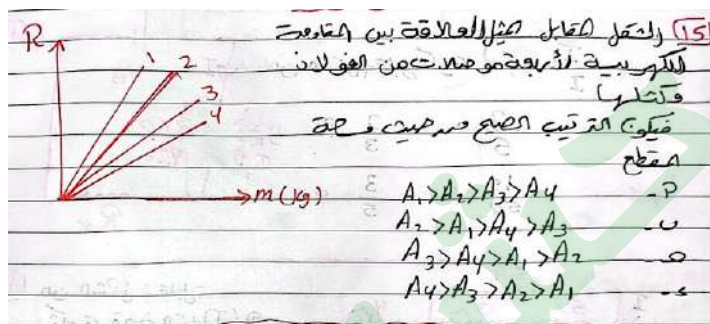 15) الشكل المقابل يمثل العلاقة بين المقاومة
الكهربية لأربعة موصلات من الفولاذ
وكتلها
فيكون الترتيب الصحيح من حيث مساحة
المقطع
P- A₁>A₂>A₃>A₄
ب- A₂>A₁>A₄>A₃
ج- A₃>A₄>A₁>A₂
د- A₄>A₃>A₂>A₁
R
1
2
3
4
m(kg)